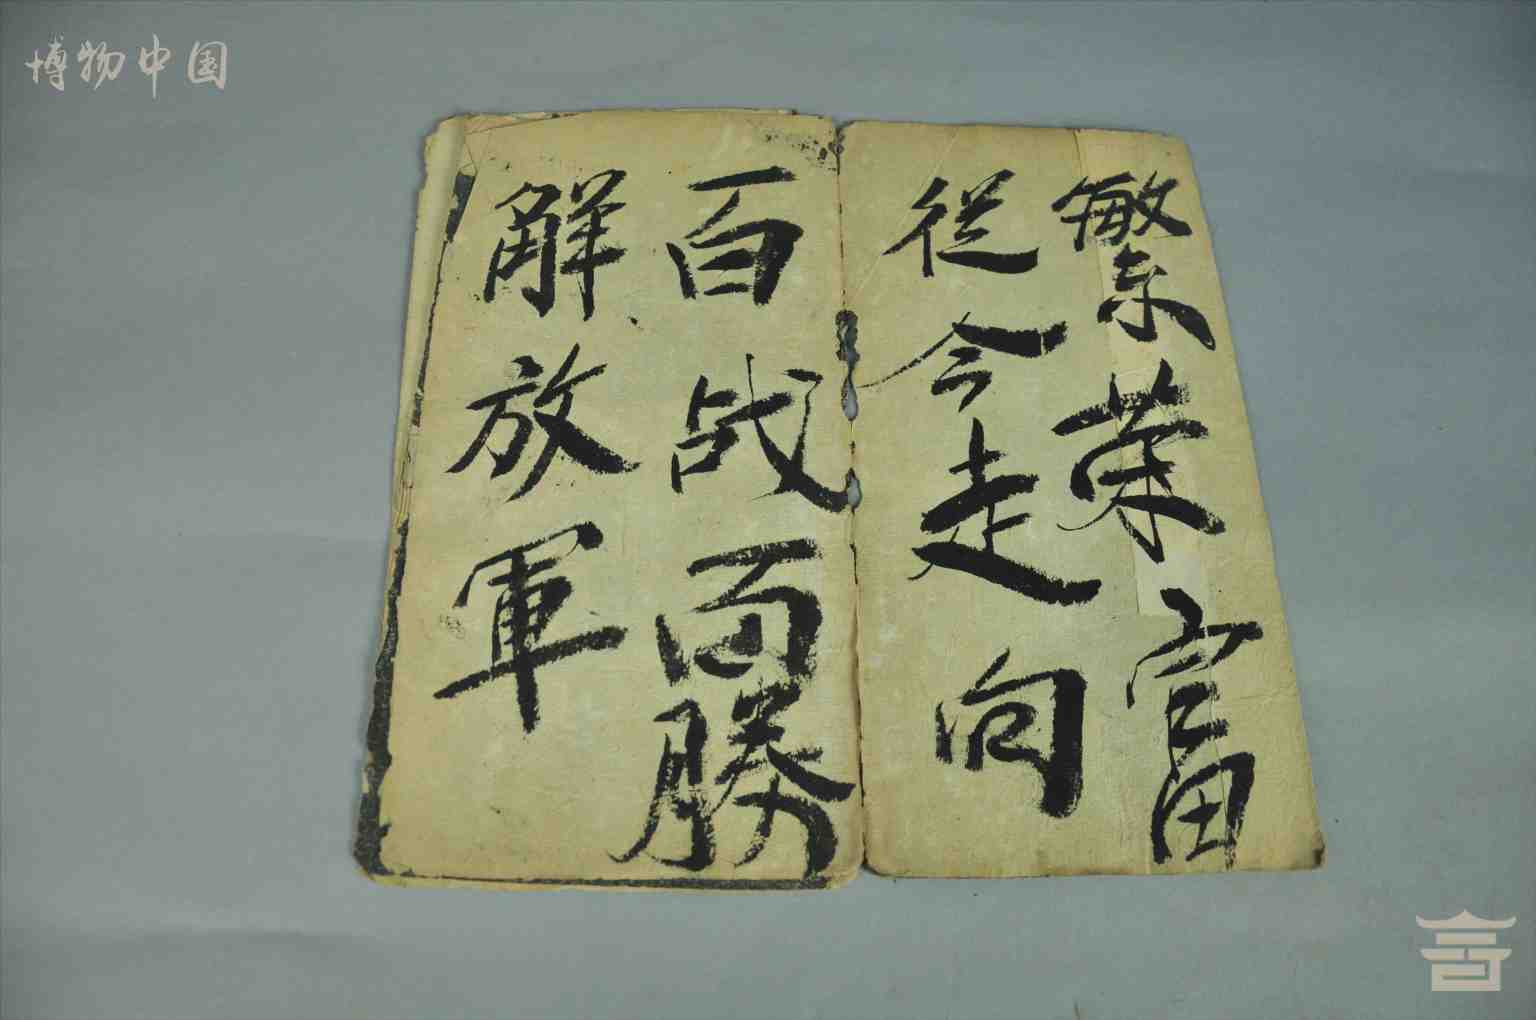 博物中国
繁荣富
從今走向
百战百勝
解放軍